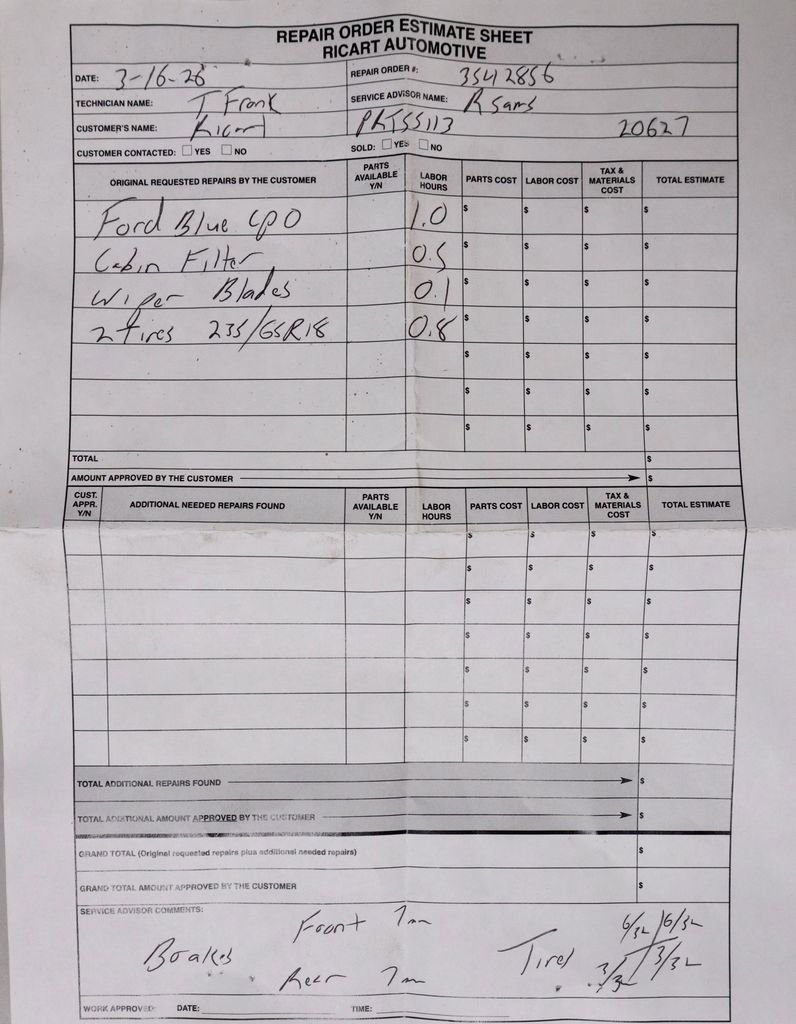 REPAIR ORDER ESTIMATE SHEET
RICART AUTOMOTIVE
DATE: 3-16-26 REPAIR ORDER #: 3542856
TECHNICIAN NAME: T Frank SERVICE ADVISOR NAME: R Sams
CUSTOMER'S NAME: Ricart PRTSS113 20627
CUSTOMER CONTACTED: YES NO SOLD: YES NO
ORIGINAL REQUESTED REPAIRS BY THE CUSTOMER PARTS AVAILABLE Y/N LABOR HOURS PARTS COST LABOR COST TAX & MATERIALS COST TOTAL ESTIMATE
Ford Blue CPO 1.0 $ $ $ $
Cabin Filter 0.5 $ $ $ $
Wiper Blades 0.1 $ $ $ $
2 tires 235/65R18 0.8 $ $ $ $
$ $ $ $
$ $ $ $
$ $ $ $
TOTAL $
AMOUNT APPROVED BY THE CUSTOMER $
CUST. APPR. Y/N ADDITIONAL NEEDED REPAIRS FOUND PARTS AVAILABLE Y/N LABOR HOURS PARTS COST LABOR COST TAX & MATERIALS COST TOTAL ESTIMATE
$ $ $ $
$ $ $ $
$ $ $ $
$ $ $ $
$ $ $ $
$ $ $ $
$ $ $ $
TOTAL ADDITIONAL REPAIRS FOUND $
TOTAL ADDITIONAL AMOUNT APPROVED BY THE CUSTOMER $
GRAND TOTAL (Original requested repairs plus additional needed repairs) $
GRAND TOTAL AMOUNT APPROVED BY THE CUSTOMER $
SERVICE ADVISOR COMMENTS:
Front 7mm 6/32 6/32
Brakes Tires
Rear 7m 3/32 3/32
WORK APPROVED: DATE: TIME: